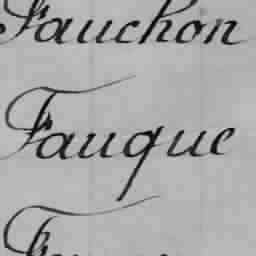 Fauchon
Fauque